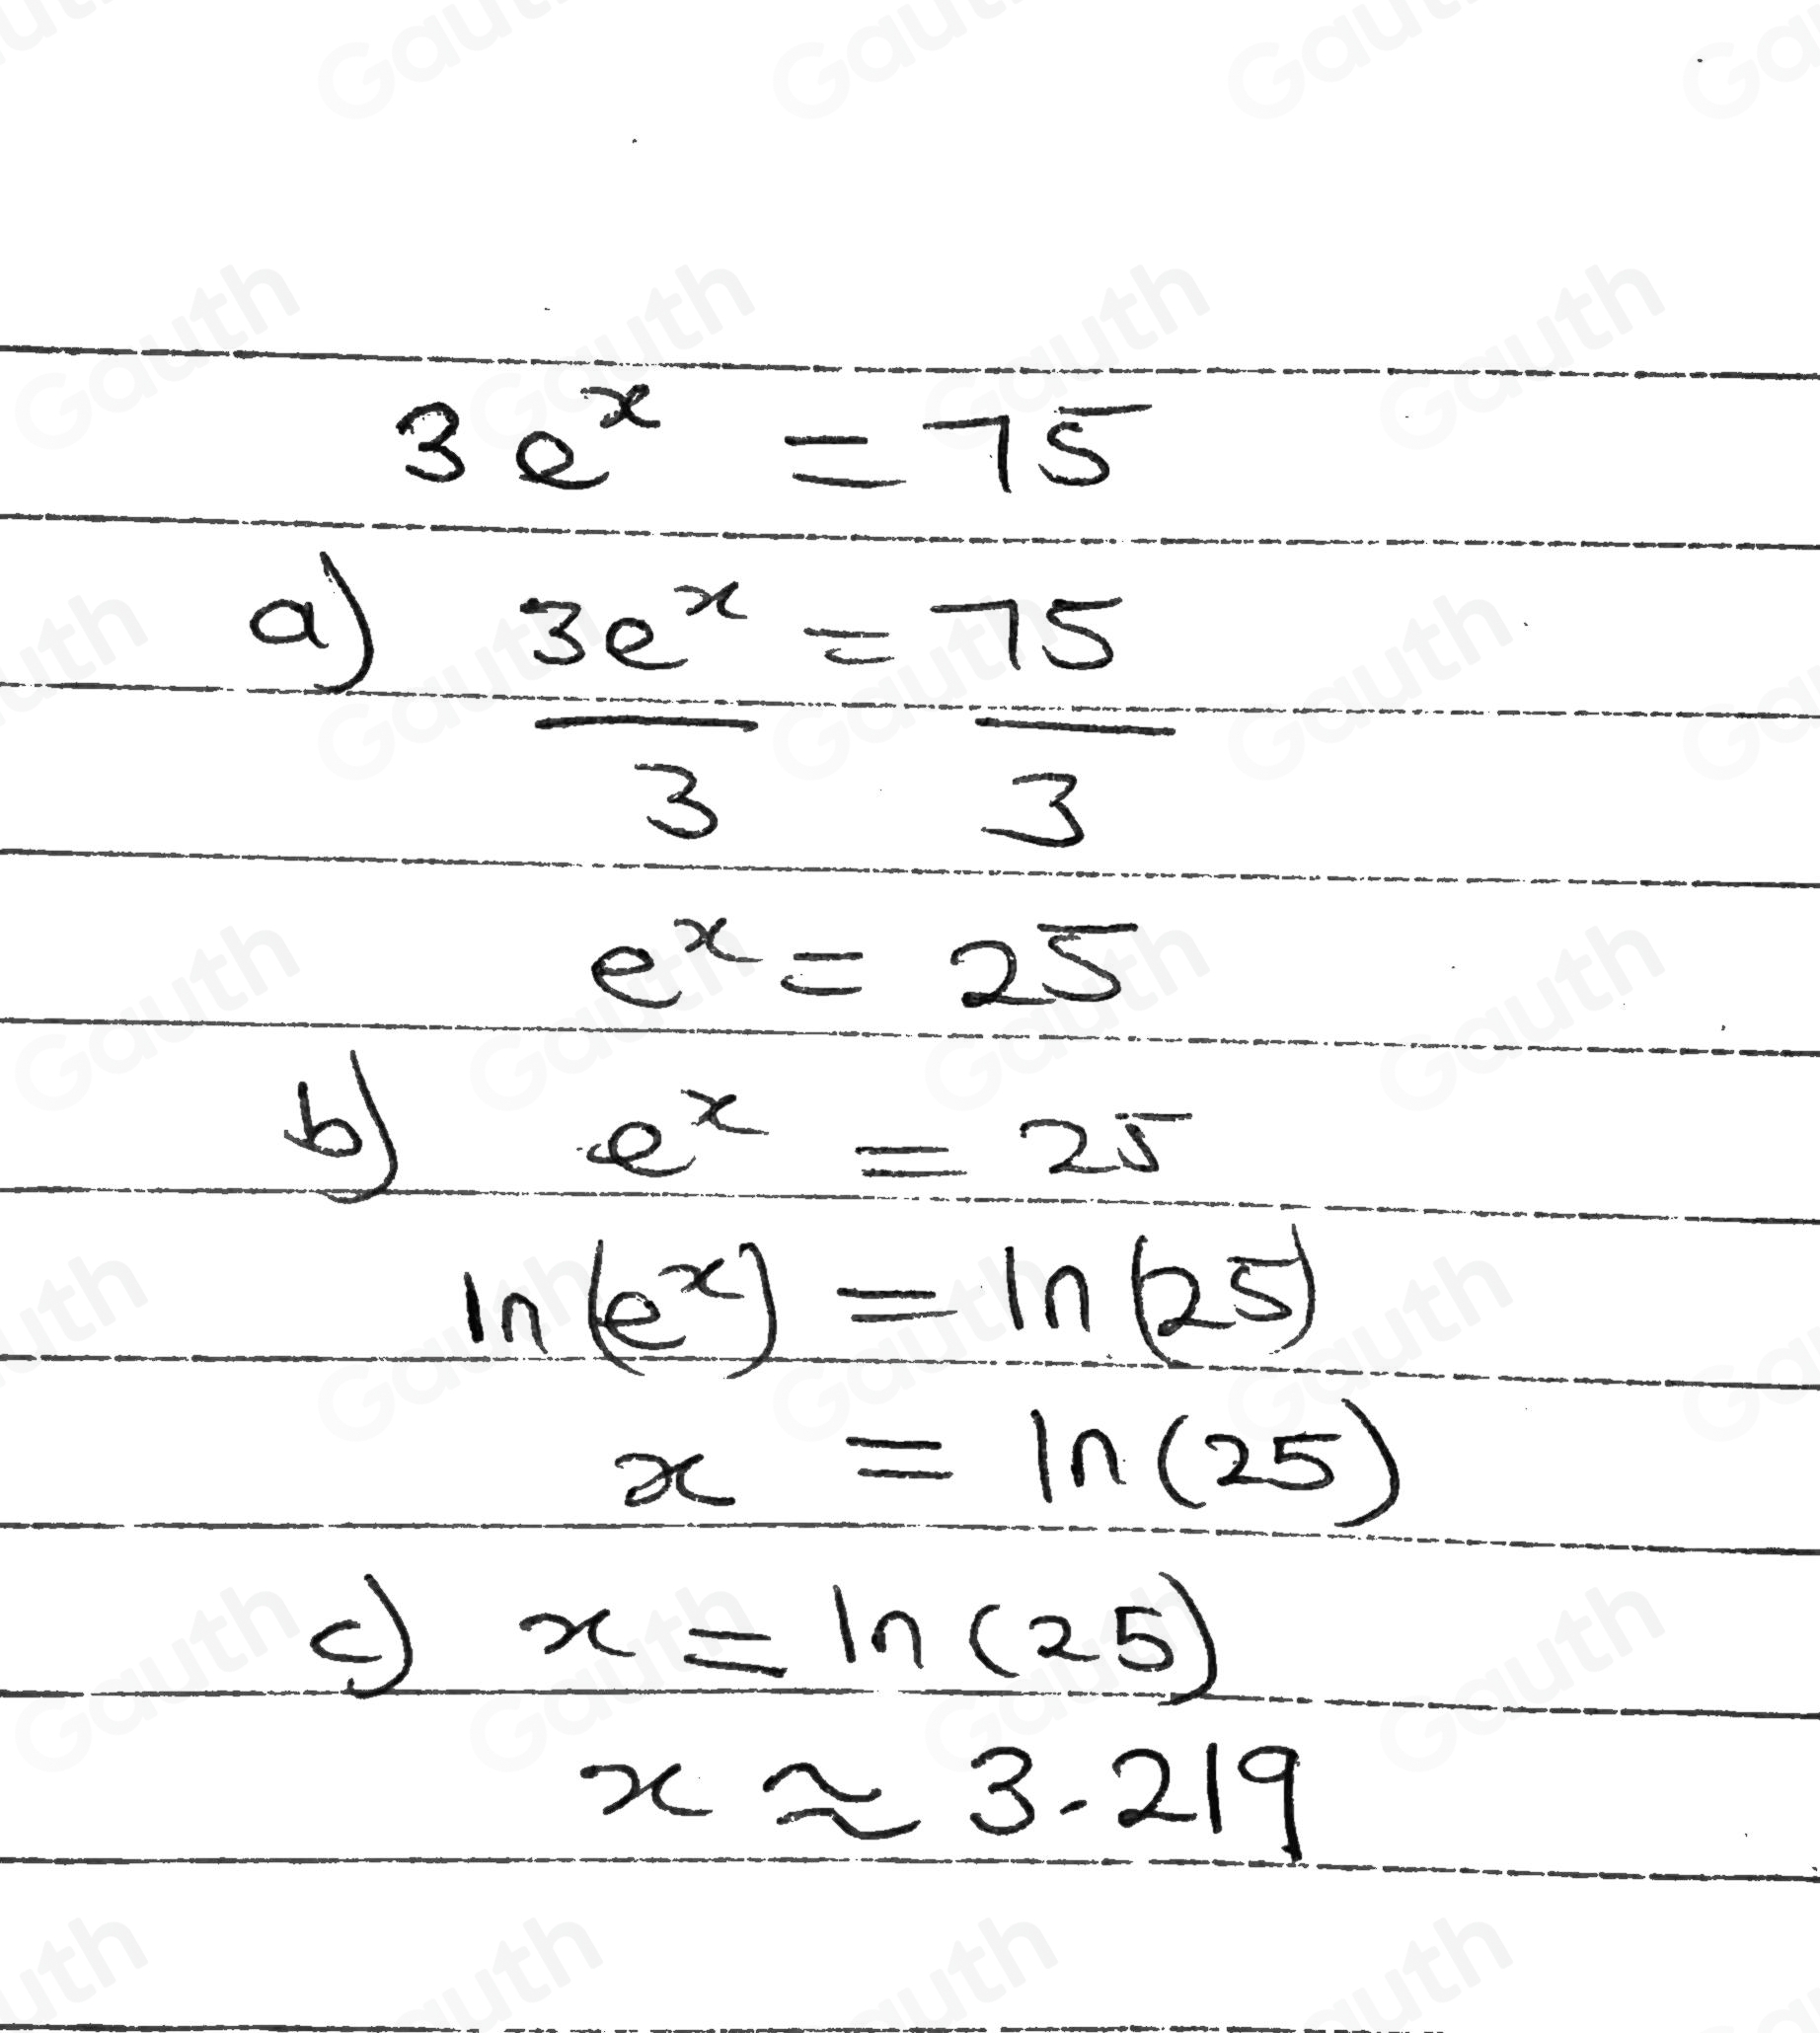 3e^x = 75
a) 3e^x = 75
3 3
e^x = 25
b) e^x = 25
ln(e^x) = ln(25)
x = ln(25)
c) x = ln(25)
x ≈ 3.219
Gauth